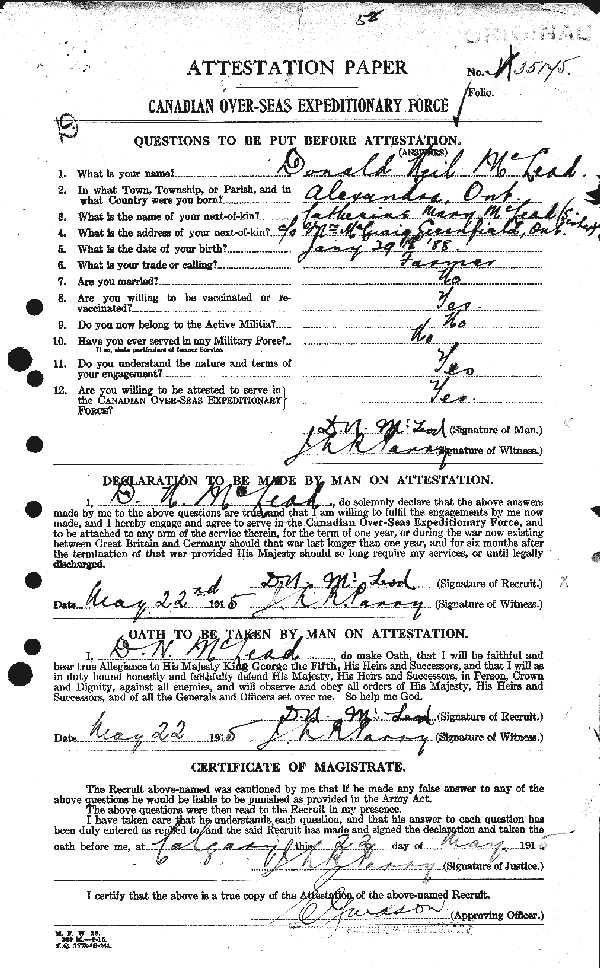 58
ATTESTATION PAPER
No. 35145.
Folio.
CANADIAN OVER-SEAS EXPEDITIONARY FORCE
QUESTIONS TO BE PUT BEFORE ATTESTATION.
(ANSWERS)
1. What is your name? Donald Neil McLead.
2. In what Town, Township, or Parish, and in what Country were you born? Alexandra, Ont
3. What is the name of your next-of-kin? Catherine Mary McLead
4. What is the address of your next-of-kin? c/o Mrs McCraig Greenfield, Ont.
5. What is the date of your birth? Jany 29th '88
6. What is your trade or calling? Farmer
7. Are you married? No
8. Are you willing to be vaccinated or re-vaccinated? Yes.
9. Do you now belong to the Active Militia? No
10. Have you ever served in any Military Force? No
If so, state particulars of former Service
11. Do you understand the nature and terms of your engagement? Yes
12. Are you willing to be attested to serve in the CANADIAN OVER-SEAS EXPEDITIONARY FORCE? Yes.
D.N. McLeod (Signature of Man.)
(Signature of Witness.)
DECLARATION TO BE MADE BY MAN ON ATTESTATION.
I, D. N. McLead, do solemnly declare that the above answers
made by me to the above questions are true and that I am willing to fulfil the engagements by me now
made, and I hereby engage and agree to serve in the Canadian Over-Seas Expeditionary Force, and
to be attached to any arm of the service therein, for the term of one year, or during the war now existing
between Great Britain and Germany should that war last longer than one year, and for six months after
the termination of that war provided His Majesty should so long require my services, or until legally
discharged.
D.N. McLeod (Signature of Recruit.)
Date May 22nd 1915 (Signature of Witness.)
OATH TO BE TAKEN BY MAN ON ATTESTATION.
I, D. N. McLead, do make Oath, that I will be faithful and
bear true Allegiance to His Majesty King George the Fifth, His Heirs and Successors, and that I will as
in duty bound honestly and faithfully defend His Majesty, His Heirs and Successors, in Person, Crown
and Dignity, against all enemies, and will observe and obey all orders of His Majesty, His Heirs and
Successors, and of all the Generals and Officers set over me. So help me God.
D.N. McLeod (Signature of Recruit.)
Date May 22 1915 (Signature of Witness.)
CERTIFICATE OF MAGISTRATE.
The Recruit above-named was cautioned by me that if he made any false answer to any of the
above questions he would be liable to be punished as provided in the Army Act.
The above questions were then read to the Recruit in my presence.
I have taken care that he understands each question, and that his answer to each question has
been duly entered as replied to, and the said Recruit has made and signed the declaration and taken the
oath before me, at Calgary this 22 day of May 1915
(Signature of Justice.)
I certify that the above is a true copy of the Attestation of the above-named Recruit.
(Approving Officer.)
M. F. W. 23.